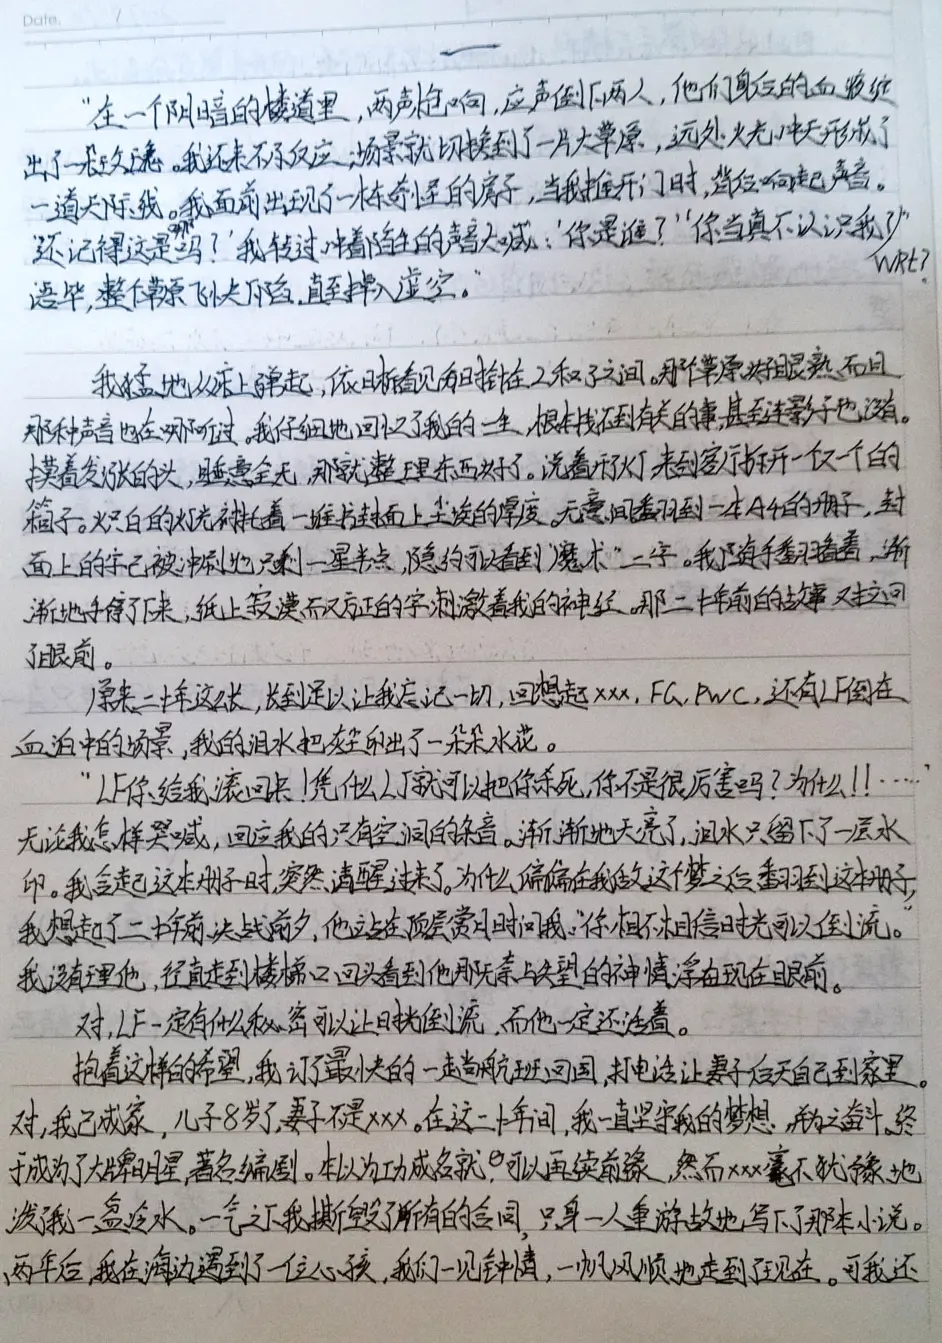 Date.
一
"在一个阴暗的楼道里，两声枪响，应声倒下两人，他们身后的血液绽
出了一朵玫瑰。我还来不及反应，场景就切换到了一片大草原，远处火光冲天形成了
一道天际线。我面前出现了一栋奇怪的房子，当我推开门时，背后响起声音。
'还记得这是哪吗？'我转过冲着陌生的声音大喊：'你是谁？''你当真不认识我了
WRt？
语毕，整个草原飞快下陷，直至掉入虚空。"
我猛地从床上弹起，依日晰看见时针在2和3之间。那个草原好眼熟，而且
那种声音也在哪听过。我仔细地回忆了我的一生，根本找不到有关的事，甚至连影子也没有。
摸着发涨的头，睡意全无，那就整理东西好了。说着开了灯，来到客厅打开一个又一个的
箱子。炽白的灯光衬托着一堆书封面上尘埃的厚度。无意间翻到一本A4的册子，封
面上的字已被冲刷地只剩一星半点，隐约可以看到"魔术"二字。我随手翻看着，渐
渐地手停了下来，纸上寂寞而又方正的字刺激着我的神经。那二十年前的故事又拉回
了眼前。
原来二十年这么长，长到足以让我忘记一切，回想起xxx，FG，PWC，还有LF倒在
血泊中的场景，我的泪水把灰尘印出了一朵朵水花。
"LF你给我滚回来！凭什么LJ就可以把你杀死，你不是很厉害吗？为什么！！……"
无论我怎样哭喊，回应我的只有空洞的杂音。渐渐地天亮了，泪水只留下了一层水
印。我合起这本册子时，突然清醒过来了。为什么偏偏在我做这个梦之后翻到这本册子，
我想起了二十年前决战前夕，他站在顶层赏月时问我："你相不相信时光可以倒流。"
我没有理他，径直走到楼梯口回头看到他那无奈与失望的神情浮在现在眼前。
对，LF一定有什么秘密可以让时光倒流，而他一定还活着。
抱着这样的希望，我订了最快的一趟航班回国，打电话让妻子后天自己到家里。
对，我已成家，儿子8岁了，妻子不是xxx。在这二十年间，我一直坚守我的梦想，并为之奋斗，终
于成为了大牌明星，著名编剧。本以为功成名就，可以再续前缘，然而xxx毫不犹豫地
泼了我一盆冷水。一气之下我撕毁了所有的合同，只身一人重游故地，写下了那本小说。
两年后，我在海边遇到了一位女孩，我们一见钟情，一帆风顺地走到了现在。可我还